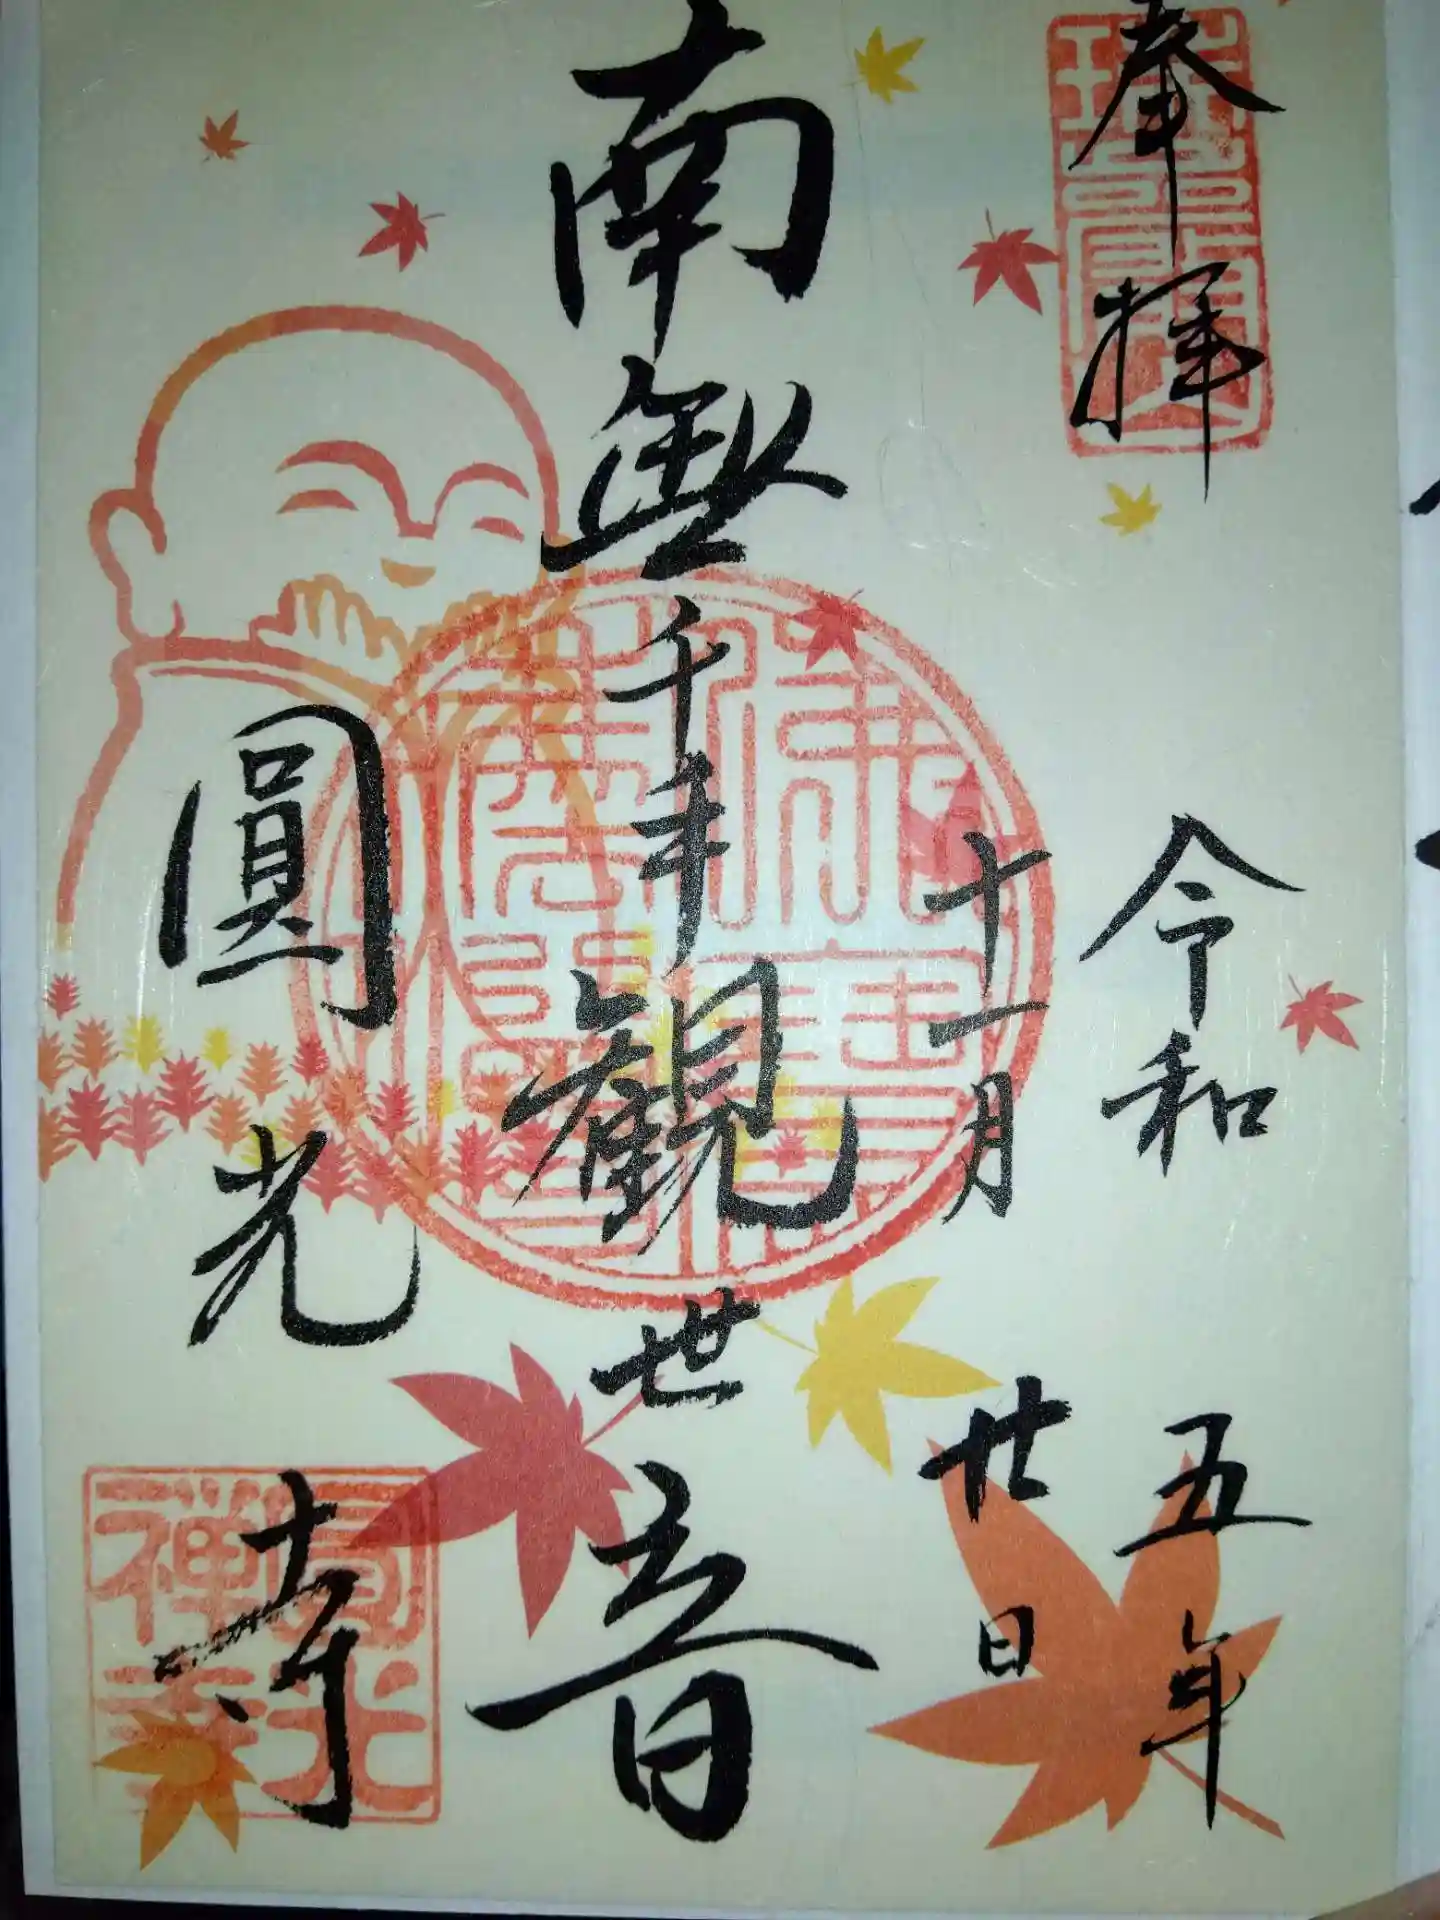 奉拝
令和五年
十一月廿日
南無千手観世音
圓光寺
圓光
禅寺